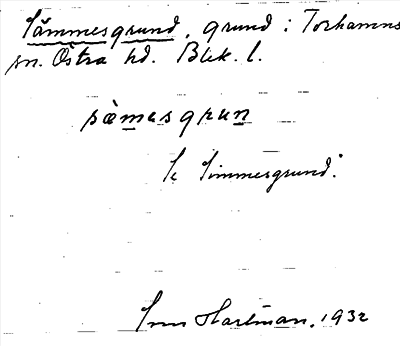 Sämmesgrund, grund i Torhamns
sn. Östra hd. Blek. l.
sæmesgrun
Se Simmesgrund.
Sven Hartman, 1932